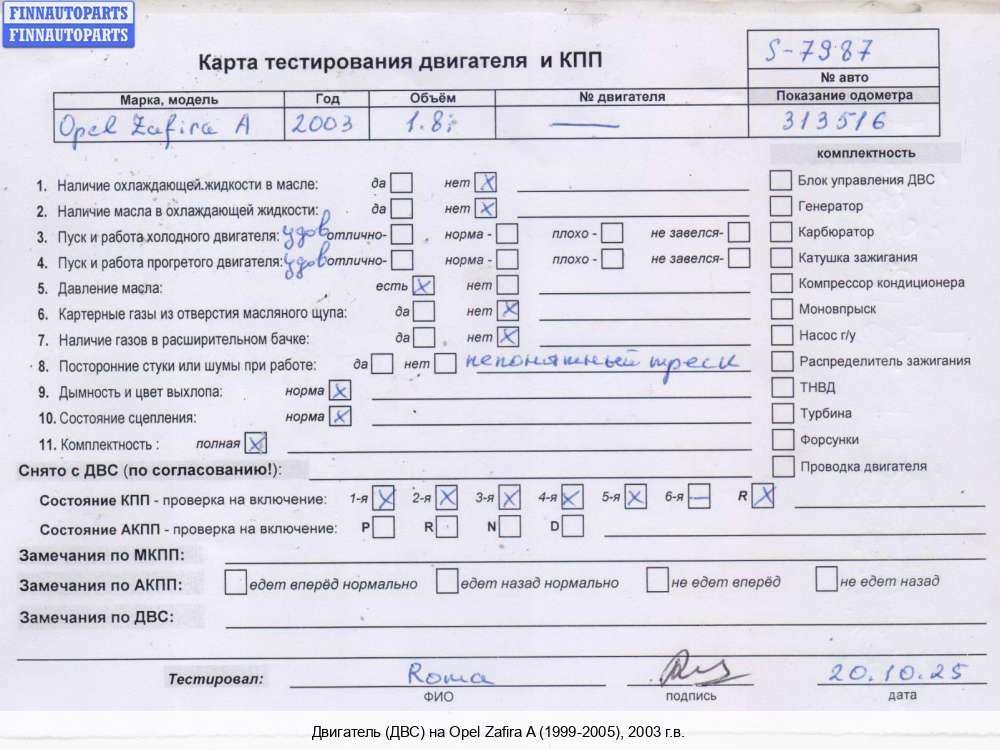 FINNAUTOPARTS
FINNAUTOPARTS
Карта тестирования двигателя и КПП
S-7987
№ авто
Марка, модель Год Объём № двигателя Показание одометра
Opel Zafira A 2003 1.8i — 313516
комплектность
1. Наличие охлаждающей жидкости в масле: да нет X
Блок управления ДВС
2. Наличие масла в охлаждающей жидкости: да нет X
Генератор
3. Пуск и работа холодного двигателя: удов отлично- норма - плохо - не завелся-
Карбюратор
4. Пуск и работа прогретого двигателя: удов отлично- норма - плохо - не завелся-
Катушка зажигания
5. Давление масла: есть X нет
Компрессор кондиционера
6. Картерные газы из отверстия масляного щупа: да нет X
Моновпрыск
7. Наличие газов в расширительном бачке: да нет X
Насос г/у
8. Посторонние стуки или шумы при работе: да нет непонятный треск
Распределитель зажигания
9. Дымность и цвет выхлопа: норма X
ТНВД
10. Состояние сцепления: норма X
Турбина
11. Комплектность : полная X
Форсунки
Снято с ДВС (по согласованию!):
Проводка двигателя
Состояние КПП - проверка на включение: 1-я X 2-я X 3-я X 4-я X 5-я X 6-я — R X
Состояние АКПП - проверка на включение: P R N D
Замечания по МКПП:
Замечания по АКПП: едет вперёд нормально едет назад нормально не едет вперёд не едет назад
Замечания по ДВС:
Тестировал: Roma 20.10.25
ФИО подпись дата
Двигатель (ДВС) на Opel Zafira A (1999-2005), 2003 г.в.